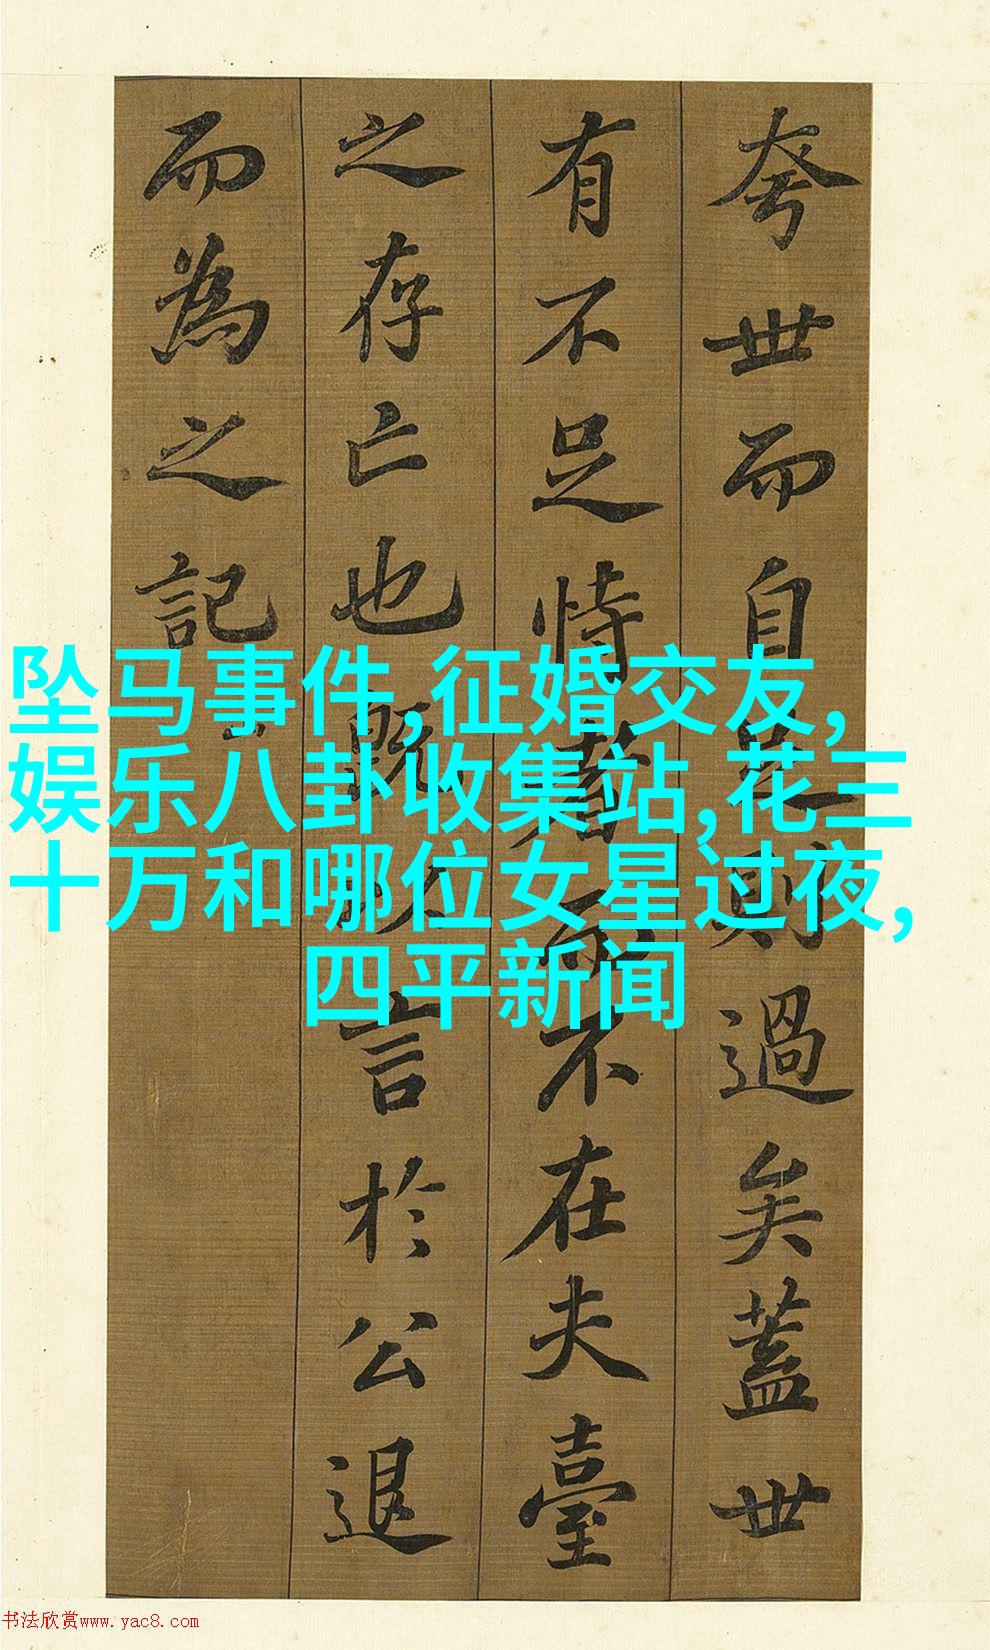 夸世而自足則過矣蓋世
有不足恃者而不在夫臺
之存亡也既以言於公退
而為之記
坠马事件,征婚交友,
娱乐八卦收集站,花三
十万和哪位女星过夜,
四平新闻
书法欣赏www.yac8.com